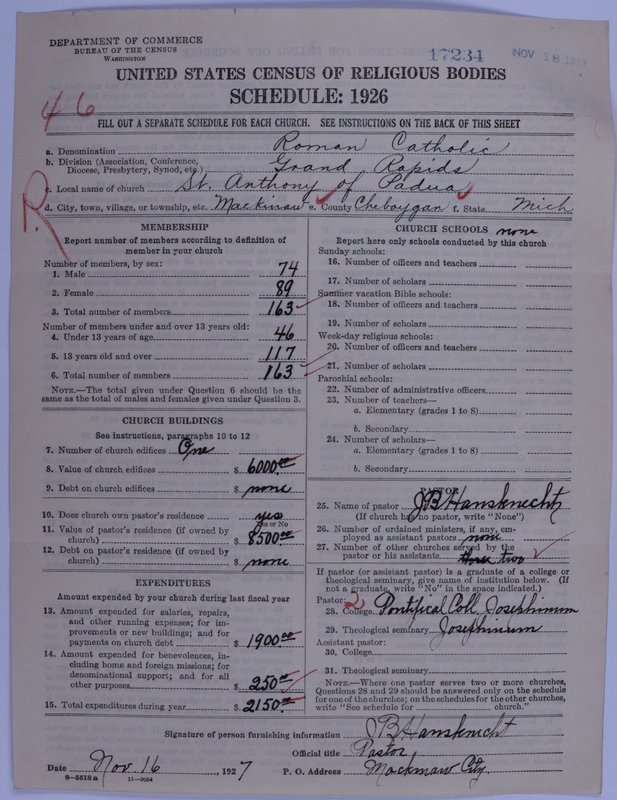 DEPARTMENT OF COMMERCE
BUREAU OF THE CENSUS
WASHINGTON
17234 NOV 18 1927
UNITED STATES CENSUS OF RELIGIOUS BODIES
SCHEDULE: 1926
46
FILL OUT A SEPARATE SCHEDULE FOR EACH CHURCH. SEE INSTRUCTIONS ON THE BACK OF THIS SHEET
a. Denomination Roman Catholic
b. Division (Association, Conference, Diocese, Presbytery, Synod, etc.) Grand Rapids
c. Local name of church St. Anthony of Padua
R
d. City, town, village, or township, etc. Mackinaw e. County Cheboygan f. State Mich
MEMBERSHIP
Report number of members according to definition of
member in your church
Number of members, by sex:
1. Male 74
2. Female 89
3. Total number of members 163
Number of members under and over 13 years old:
4. Under 13 years of age 46
5. 13 years old and over 117
6. Total number of members 163
NOTE.—The total given under Question 6 should be
same as the total of males and females given under Question 3.
CHURCH BUILDINGS
See instructions, paragraphs 10 to 12
7. Number of church edifices One
8. Value of church edifices $ 6000.00
9. Debt on church edifices $ none
10. Does church own pastor's residence? yes
Yes or No
11. Value of pastor's residence (if owned by
church) $ 8500.00
12. Debt on pastor's residence (if owned by
church) $ none
EXPENDITURES
Amount expended by your church during last fiscal year
13. Amount expended for salaries, repairs,
and other running expenses; for im-
provements or new buildings; and for
payments on church debt $ 1900.00
14. Amount expended for benevolences, in-
cluding home and foreign missions; for
denominational support; and for all
other purposes $ 250.00
15. Total expenditures during year $ 2150.00
CHURCH SCHOOLS none
Report here only schools conducted by this church
Sunday schools:
16. Number of officers and teachers
17. Number of scholars
Summer vacation Bible schools:
18. Number of officers and teachers
19. Number of scholars
Week-day religious schools:
20. Number of officers and teachers
21. Number of scholars
Parochial schools:
22. Number of administrative officers
23. Number of teachers—
a. Elementary (grades 1 to 8)
b. Secondary
24. Number of scholars—
a. Elementary (grades 1 to 8)
b. Secondary
PASTOR
25. Name of pastor J B Hansknecht
(If church has no pastor, write "None")
26. Number of ordained ministers, if any, em-
ployed as assistant pastors none
27. Number of other churches served by the
pastor or his assistants three two
If pastor (or assistant pastor) is a graduate of a college or
theological seminary, give name of institution below. (If
not a graduate, write "No" in the space indicated.)
Pastor:
28. College Pontifical Coll. Josephinum
29. Theological seminary Josephinum
Assistant pastor:
30. College
31. Theological seminary
NOTE.—Where one pastor serves two or more churches,
Questions 28 and 29 should be answered only on the schedule
for one of the churches; on the schedules for the other churches,
write "See schedule for church."
Signature of person furnishing information J B Hansknecht
Official title Pastor
Date Nov. 16, 1927 P. O. Address Mackinaw City.
8-5518a 11-9054